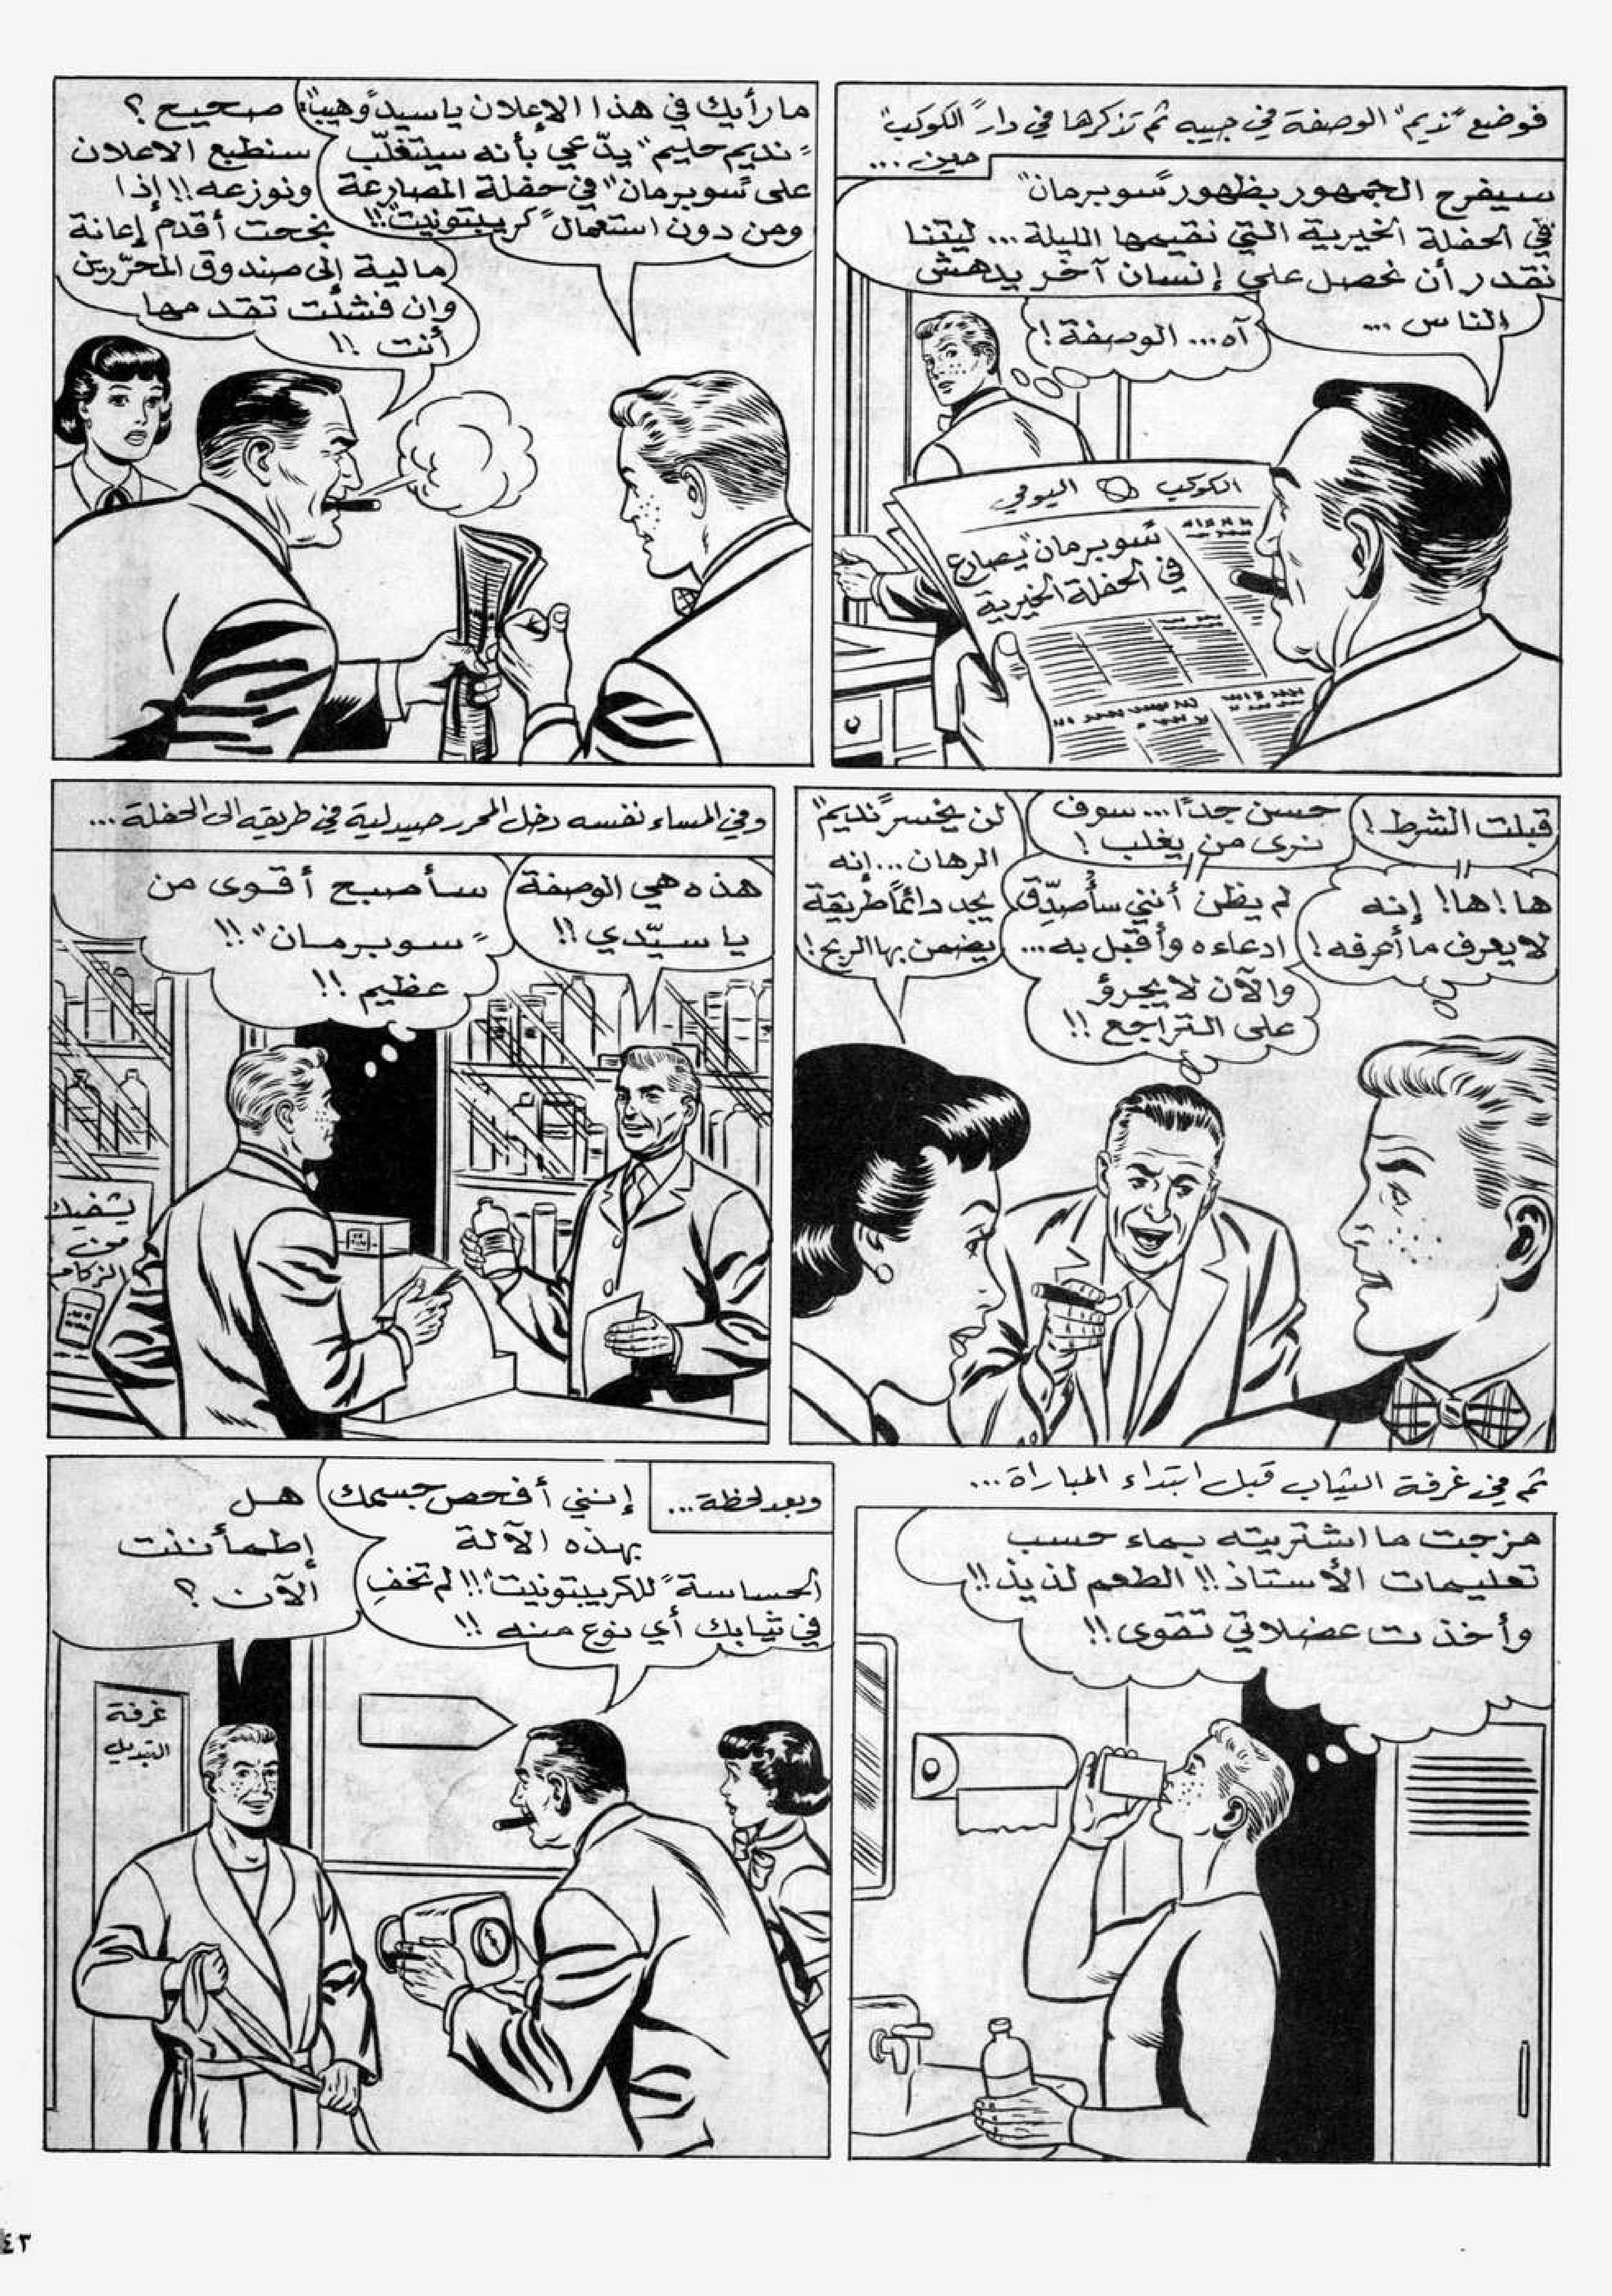 فوضع "نديم" الوصفة في جيبه ثم تذكرها في دار "الكوكب"
حين ...
سيفرح الجمهور بظهور "سوبرمان"
في الحفلة الخيرية التي نقيمها الليلة ... ليتنا
نقدر أن نحصل على إنسان آخر يدهش
الناس ...
آه ... الوصفة !
الكوكب اليومي
"سوبرمان" يصارع
في الحفلة الخيرية
ما رأيك في هذا الإعلان يا سيد "وهيب":
"نديم حليم" يدّعي بأنه سيتغلّب
على "سوبرمان" في حفلة المصارعة
ومن دون استعمال "كريبتونيت"!!
صحيح ؟
سنطبع الاعلان
ونوزعه !! إذا
نجحت أقدم إعانة
مالية إلى صندوق المحرّرين
وان فشلت تقدمها
أنت !!
قبلت الشرط !
ها ! ها ! إنه
لا يعرف ما أعرفه !
حسن جدًا ... سوف
نرى من يغلب !
لم يظن أنني سأُصدّق
ادعاءه وأقبل به ...
والآن لا يجرؤ
على التراجع !!
لن يخسر "نديم"
الرهان ... إنه
يجد دائمًا طريقة
يضمن بها الربح !
وفي المساء نفسه دخل المحرر صيدلية في طريقه الى الحفلة ...
هذه هي الوصفة
يا سيّدي !!
سأصبح أقوى من
"سوبرمان" !!
عظيم !!
يشفيك
من
الزكام
ثم في غرفة الثياب قبل ابتداء المباراة ...
مزجت ما اشتريته بماء حسب
تعليمات الأستاذ !! الطعم لذيذ !!
وأخذت عضلاتي تقوى !!
وبعد لحظة ...
إنني أفحص جسمك
بهذه الآلة
الحساسة "للكريبتونيت" !! لم تخفِ
في ثيابك أي نوع منه !!
هل
إطمأننت
الآن ؟
غرفة
التبديل
٤٣